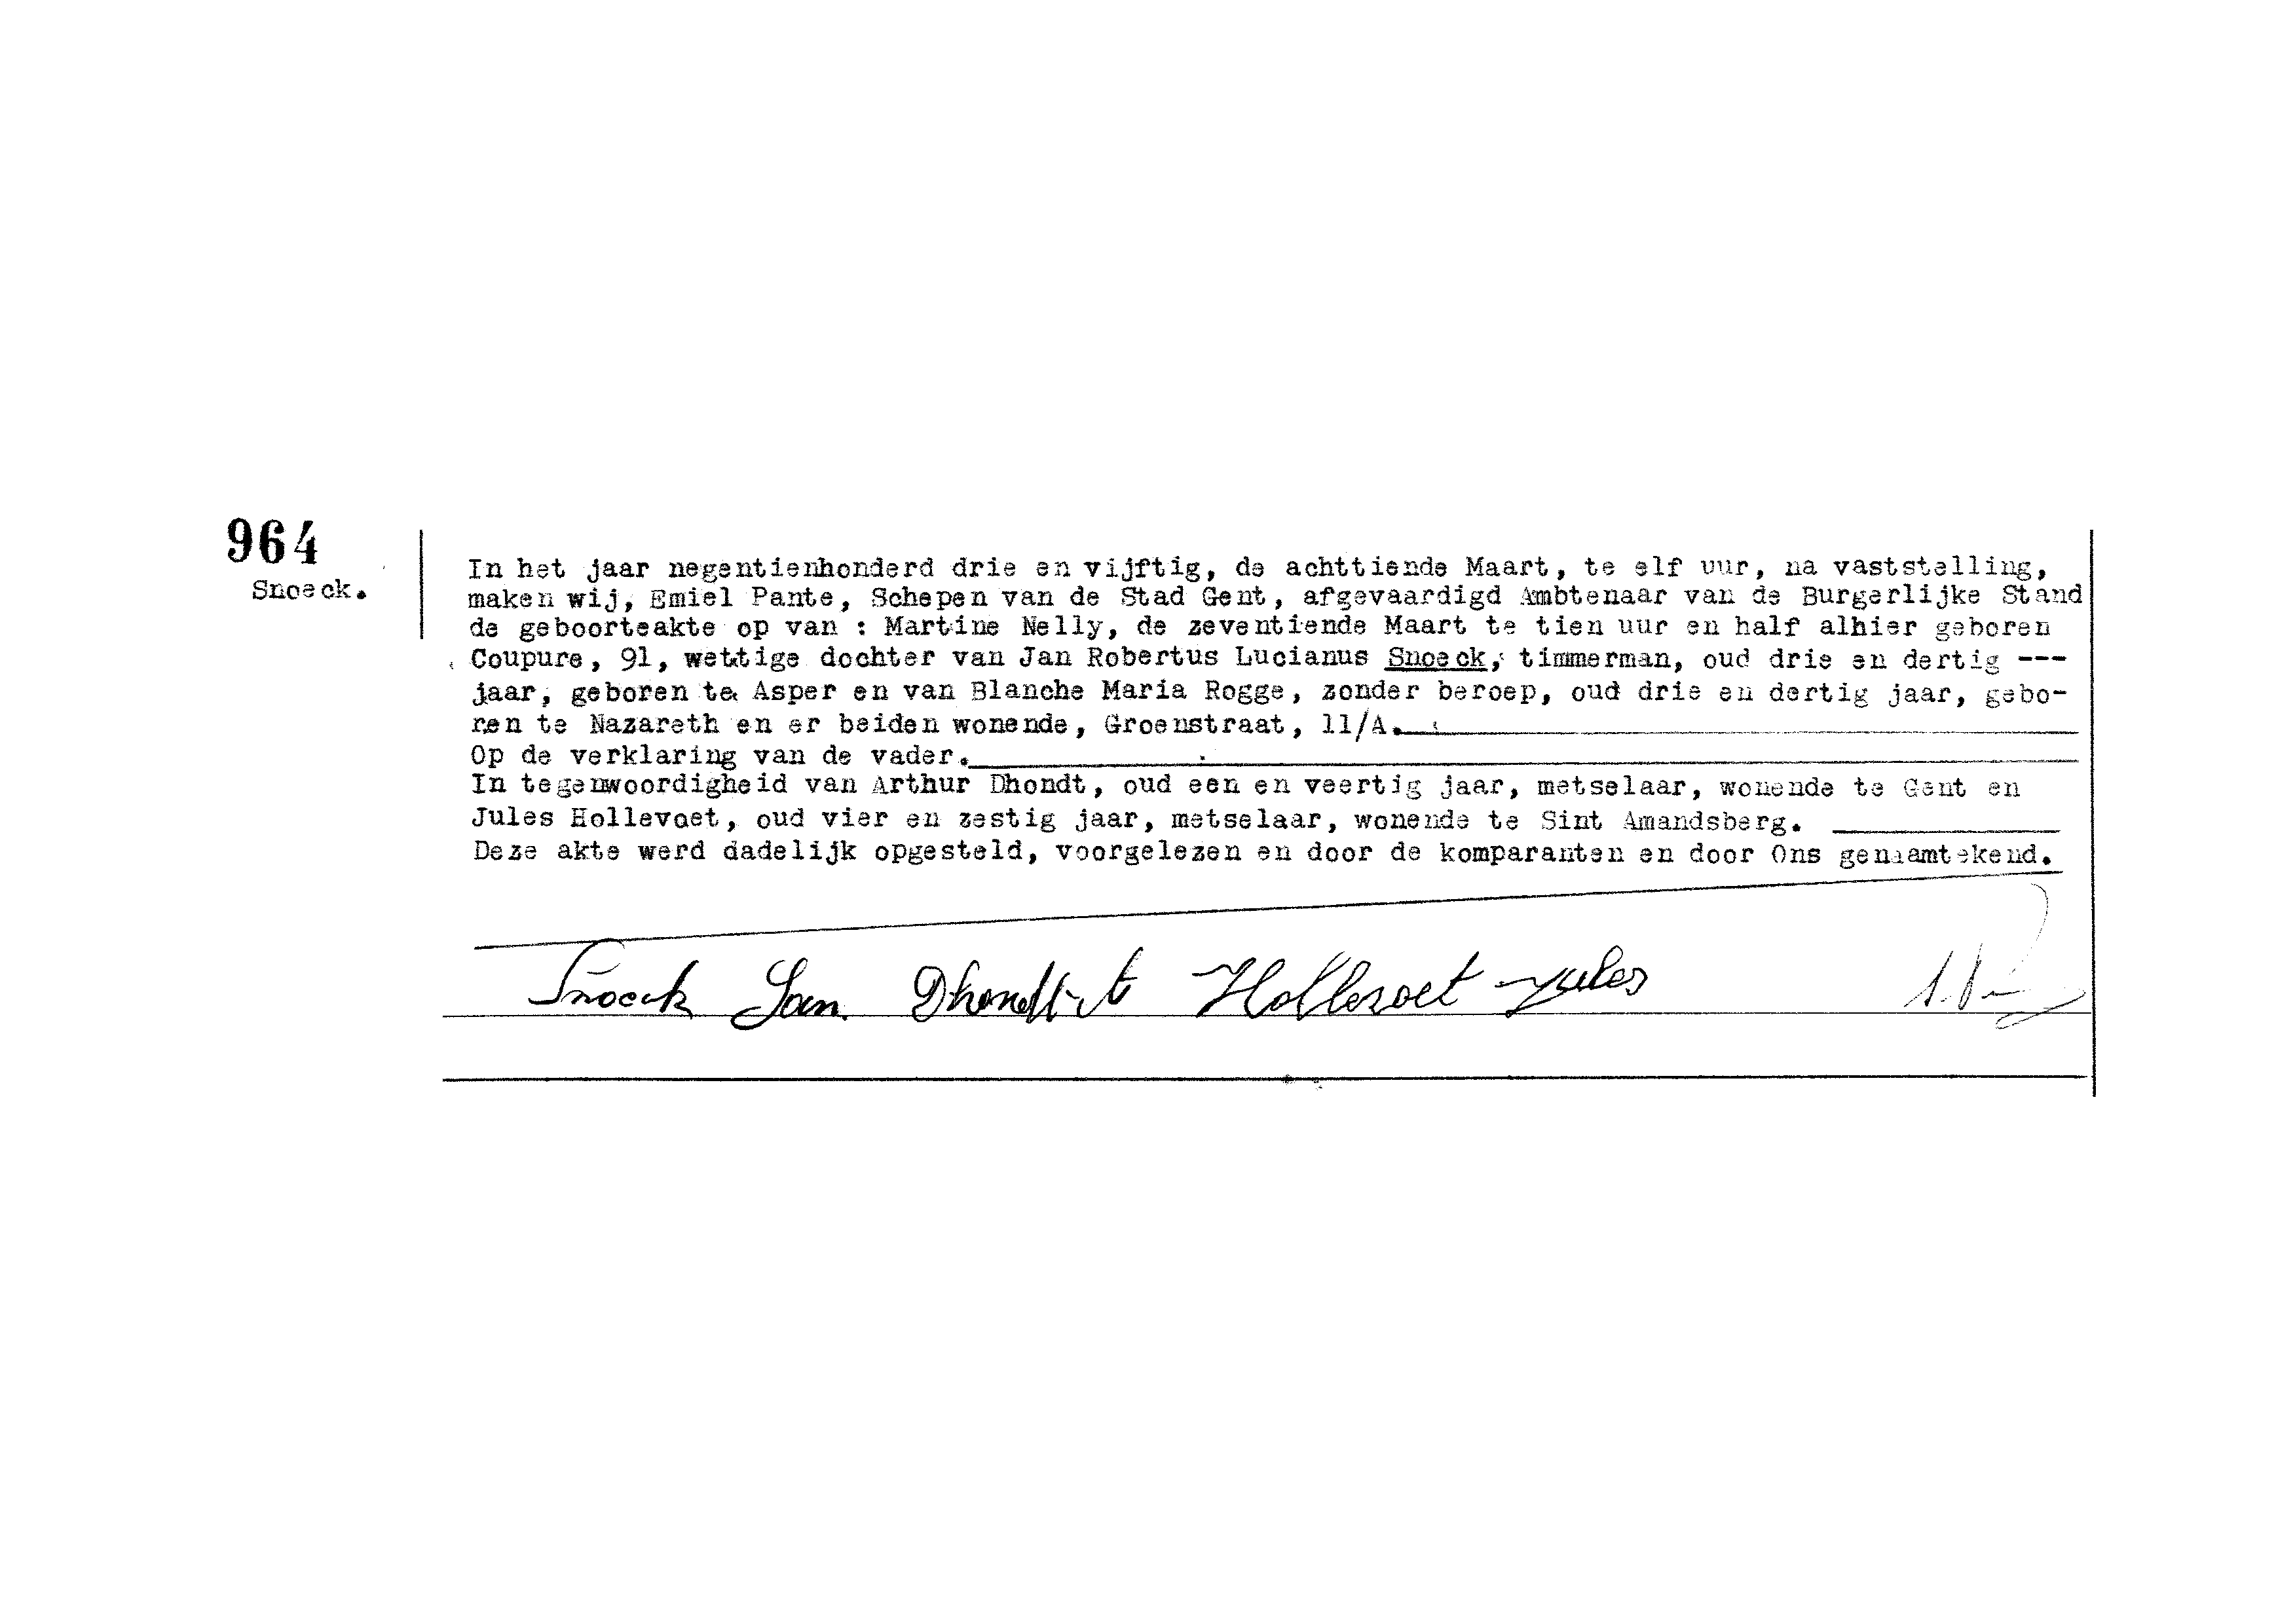 964
Snoeck.
In het jaar negentienhonderd drie en vijftig, de achttiende Maart, te elf uur, na vaststelling,
maken wij, Emiel Pante, Schepen van de Stad Gent, afgevaardigd Ambtenaar van de Burgerlijke Stand
de geboorteakte op van : Martine Nelly, de zeventiende Maart te tien uur en half alhier geboren
Coupure, 91, wettige dochter van Jan Robertus Lucianus Snoeck, timmerman, oud drie en dertig ---
jaar, geboren te Asper en van Blanche Maria Rogge, zonder beroep, oud drie en dertig jaar, gebo-
ren te Nazareth en er beiden wonende, Groenstraat, 11/A.
Op de verklaring van de vader.
In tegenwoordigheid van Arthur Dhondt, oud een en veertig jaar, metselaar, wonende te Gent en
Jules Hollevoet, oud vier en zestig jaar, metselaar, wonende te Sint Amandsberg.
Deze akte werd dadelijk opgesteld, voorgelezen en door de komparanten en door Ons genaamtekend.
Snoeck Jan. Dhondt Hollevoet Jules